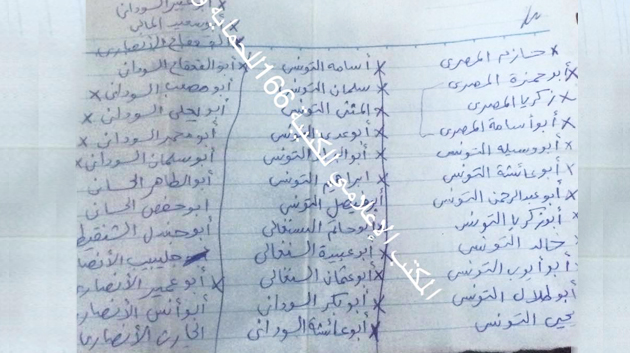 حازم المصري
أبو حمزة المصري
زكريا المصري
أبو أسامة المصري
أبو وسيله التونسي
أبو عائشة التونسي
أبو عبد الرحمن التونسي
أبو زكريا التونسي
خالد التونسي
أبو أيوب التونسي
أبو طلال التونسي
يحيى التونسي
أسامه التونسي
سلمان التونسي
المثنى التونسي
أبو عدي التونسي
التونسي
ابراهيم التونسي
التونسي
أبو حاتم السنغالي
أبو عبيدة السنغالي
أبو عثمان السنغالي
أبو بكر السوداني
أبو عائشة السوداني
السوداني
أبو سعيد المالي
أبو القعقاع الأنصاري
أبو القعقاع السوداني
أبو مصعب السوداني
أبو يحلى السوداني
أبو معمر السوداني
أبو سلمان السوداني
أبو الطاهر الحساني
أبو حفص الحساني
أبو حنظل الشنقيط
حلبيب الأنصا
أبو عمير الأنصاري
أبو أنس الأنصار
الحارث الأنصاري
المكتب الإعلامي للكتيبة 166 للحماية و